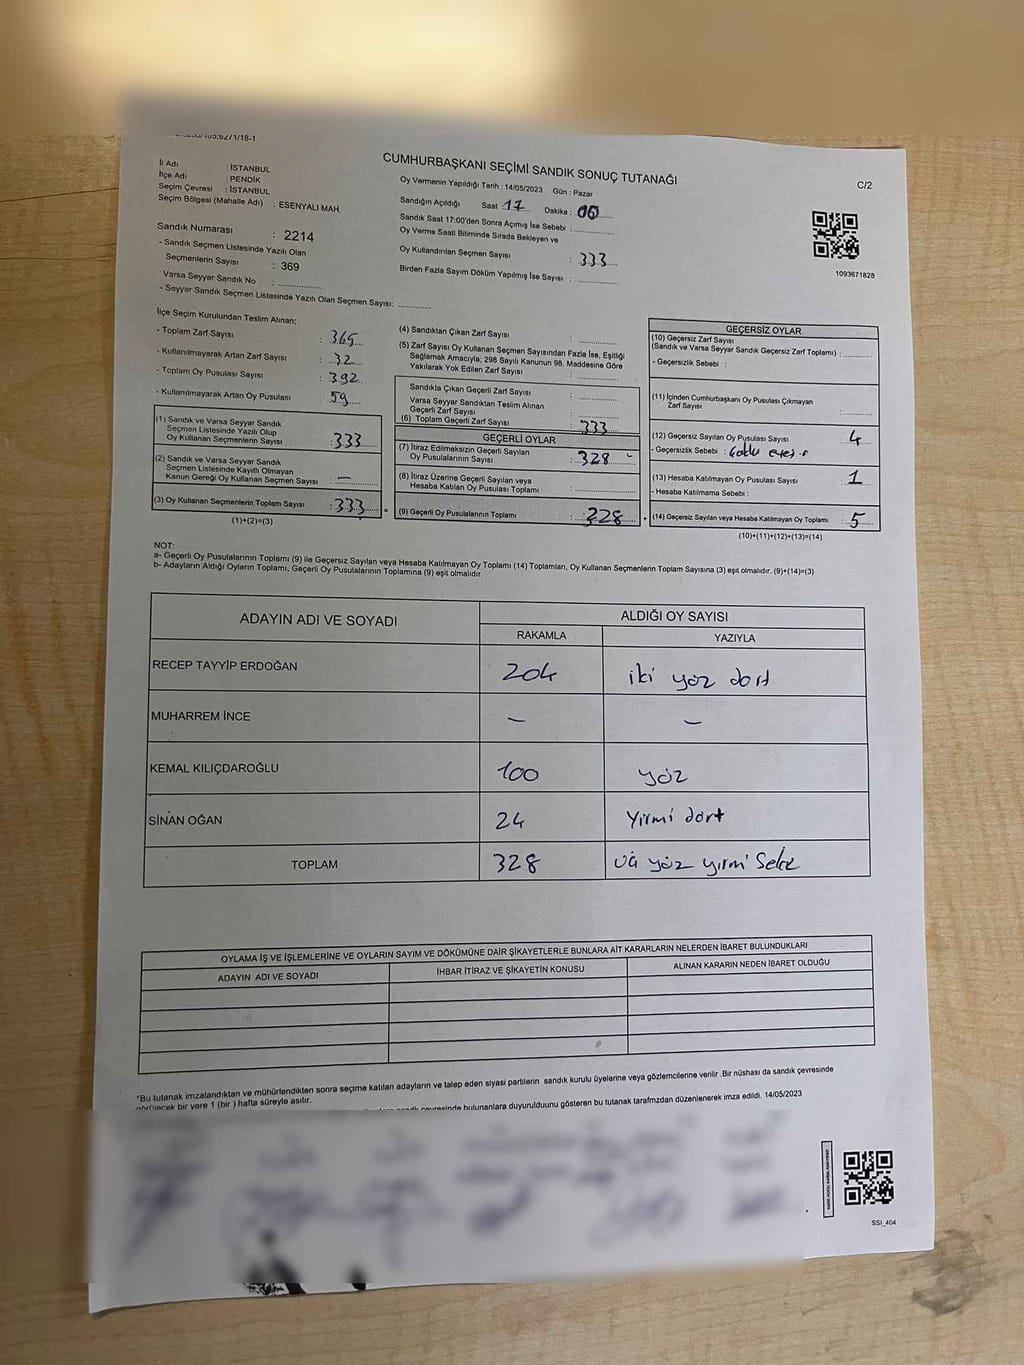 CUMHURBAŞKANI SEÇİMİ SANDIK SONUÇ TUTANAĞI
C/2
İl Adı : İSTANBUL
İlçe Adı : PENDİK
Seçim Çevresi : İSTANBUL
Seçim Bölgesi (Mahalle Adı) : ESENYALI MAH.
Sandık Numarası : 2214
- Sandık Seçmen Listesinde Yazılı Olan
Seçmenlerin Sayısı : 369
Varsa Seyyar Sandık No :
- Seyyar Sandık Seçmen Listesinde Yazılı Olan Seçmen Sayısı:
Oy Vermenin Yapıldığı Tarih : 14/05/2023 Gün : Pazar
Sandığın Açıldığı Saat 17 Dakika : 00
Sandık Saat 17:00'den Sonra Açımış İse Sebebi :
Oy Verme Saati Bitiminde Sırada Bekleyen ve
Oy Kullandırılan Seçmen Sayısı : 333
Birden Fazla Sayım Döküm Yapılmış İse Sayısı :
1093671828
İlçe Seçim Kurulundan Teslim Alınan;
- Toplam Zarf Sayısı : 365
- Kullanılmayarak Artan Zarf Sayısı : 32
- Toplam Oy Pusulası Sayısı : 392
- Kullanılmayarak Artan Oy Pusulası : 59
(1) Sandık ve Varsa Seyyar Sandık
Seçmen Listesinde Yazılı Olup
Oy Kullanan Seçmenlerin Sayısı : 333
(2) Sandık ve Varsa Seyyar Sandık
Seçmen Listesinde Kayıtlı Olmayan
Kanun Gereği Oy Kullanan Seçmen Sayısı : —
(3) Oy Kullanan Seçmenlerin Toplam Sayısı : 333
(1)+(2)=(3)
(4) Sandıktan Çıkan Zarf Sayısı :
(5) Zarf Sayısı Oy Kullanan Seçmen Sayısından Fazla İse, Eşitliği
Sağlamak Amacıyla; 298 Sayılı Kanunun 98. Maddesine Göre
Yakılarak Yok Edilen Zarf Sayısı :
Sandıkta Çıkan Geçerli Zarf Sayısı :
Varsa Seyyar Sandıktan Teslim Alınan
Geçerli Zarf Sayısı :
(6) Toplam Geçerli Zarf Sayısı : 333
GEÇERLİ OYLAR
(7) İtiraz Edilmeksizin Geçerli Sayılan
Oy Pusulalarının Sayısı : 328
(8) İtiraz Üzerine Geçerli Sayılan veya
Hesaba Katılan Oy Pusulası Toplamı :
(9) Geçerli Oy Pusulalarının Toplamı : 328
GEÇERSİZ OYLAR
(10) Geçersiz Zarf Sayısı
(Sandık ve Varsa Seyyar Sandık Geçersiz Zarf Toplamı) :
- Geçersizlik Sebebi :
(11) İçinden Cumhurbaşkanı Oy Pusulası Çıkmayan
Zarf Sayısı :
(12) Geçersiz Sayılan Oy Pusulası Sayısı : 4
- Geçersizlik Sebebi :
(13) Hesaba Katılmayan Oy Pusulası Sayısı : 1
- Hesaba Katılmama Sebebi :
(14) Geçersiz Sayılan veya Hesaba Katılmayan Oy Toplamı : 5
(10)+(11)+(12)+(13)=(14)
NOT:
a- Geçerli Oy Pusulalarının Toplamı (9) ile Geçersiz Sayılan veya Hesaba Katılmayan Oy Toplamı (14) Toplamları, Oy Kullanan Seçmenlerin Toplam Sayısına (3) eşit olmalıdır. (9)+(14)=(3)
b- Adayların Aldığı Oyların Toplamı, Geçerli Oy Pusulalarının Toplamına (9) eşit olmalıdır.
ADAYIN ADI VE SOYADI ALDIĞI OY SAYISI
RAKAMLA YAZIYLA
RECEP TAYYİP ERDOĞAN 204 iki yöz dort
MUHARREM İNCE — —
KEMAL KILIÇDAROĞLU 100 yöz
SİNAN OĞAN 24 Yirmi dort
TOPLAM 328 yöz yirmi
OYLAMA İŞ VE İŞLEMLERİNE VE OYLARIN SAYIM VE DÖKÜMÜNE DAİR ŞİKAYETLERLE BUNLARA AİT KARARLARIN NELERDEN İBARET BULUNDUKLARI
ADAYIN ADI VE SOYADI İHBAR İTİRAZ VE ŞİKAYETİN KONUSU ALINAN KARARIN NEDEN İBARET OLDUĞU
"Bu tutanak imzalandıktan ve mühürlendikten sonra seçime katılan adayların ve talep eden siyasi partilerin sandık kurulu üyelerine veya gözlemcilerine verilir .Bir nüshası da sandık çevresinde
görülecek bir yere 1 (bir ) hafta süreyle asılır.
sandık çevresinde bulunanlara duyurulduunu gösteren bu tutanak tarafmzdan düzenlenerek imza edildi. 14/05/2023
SSI_404